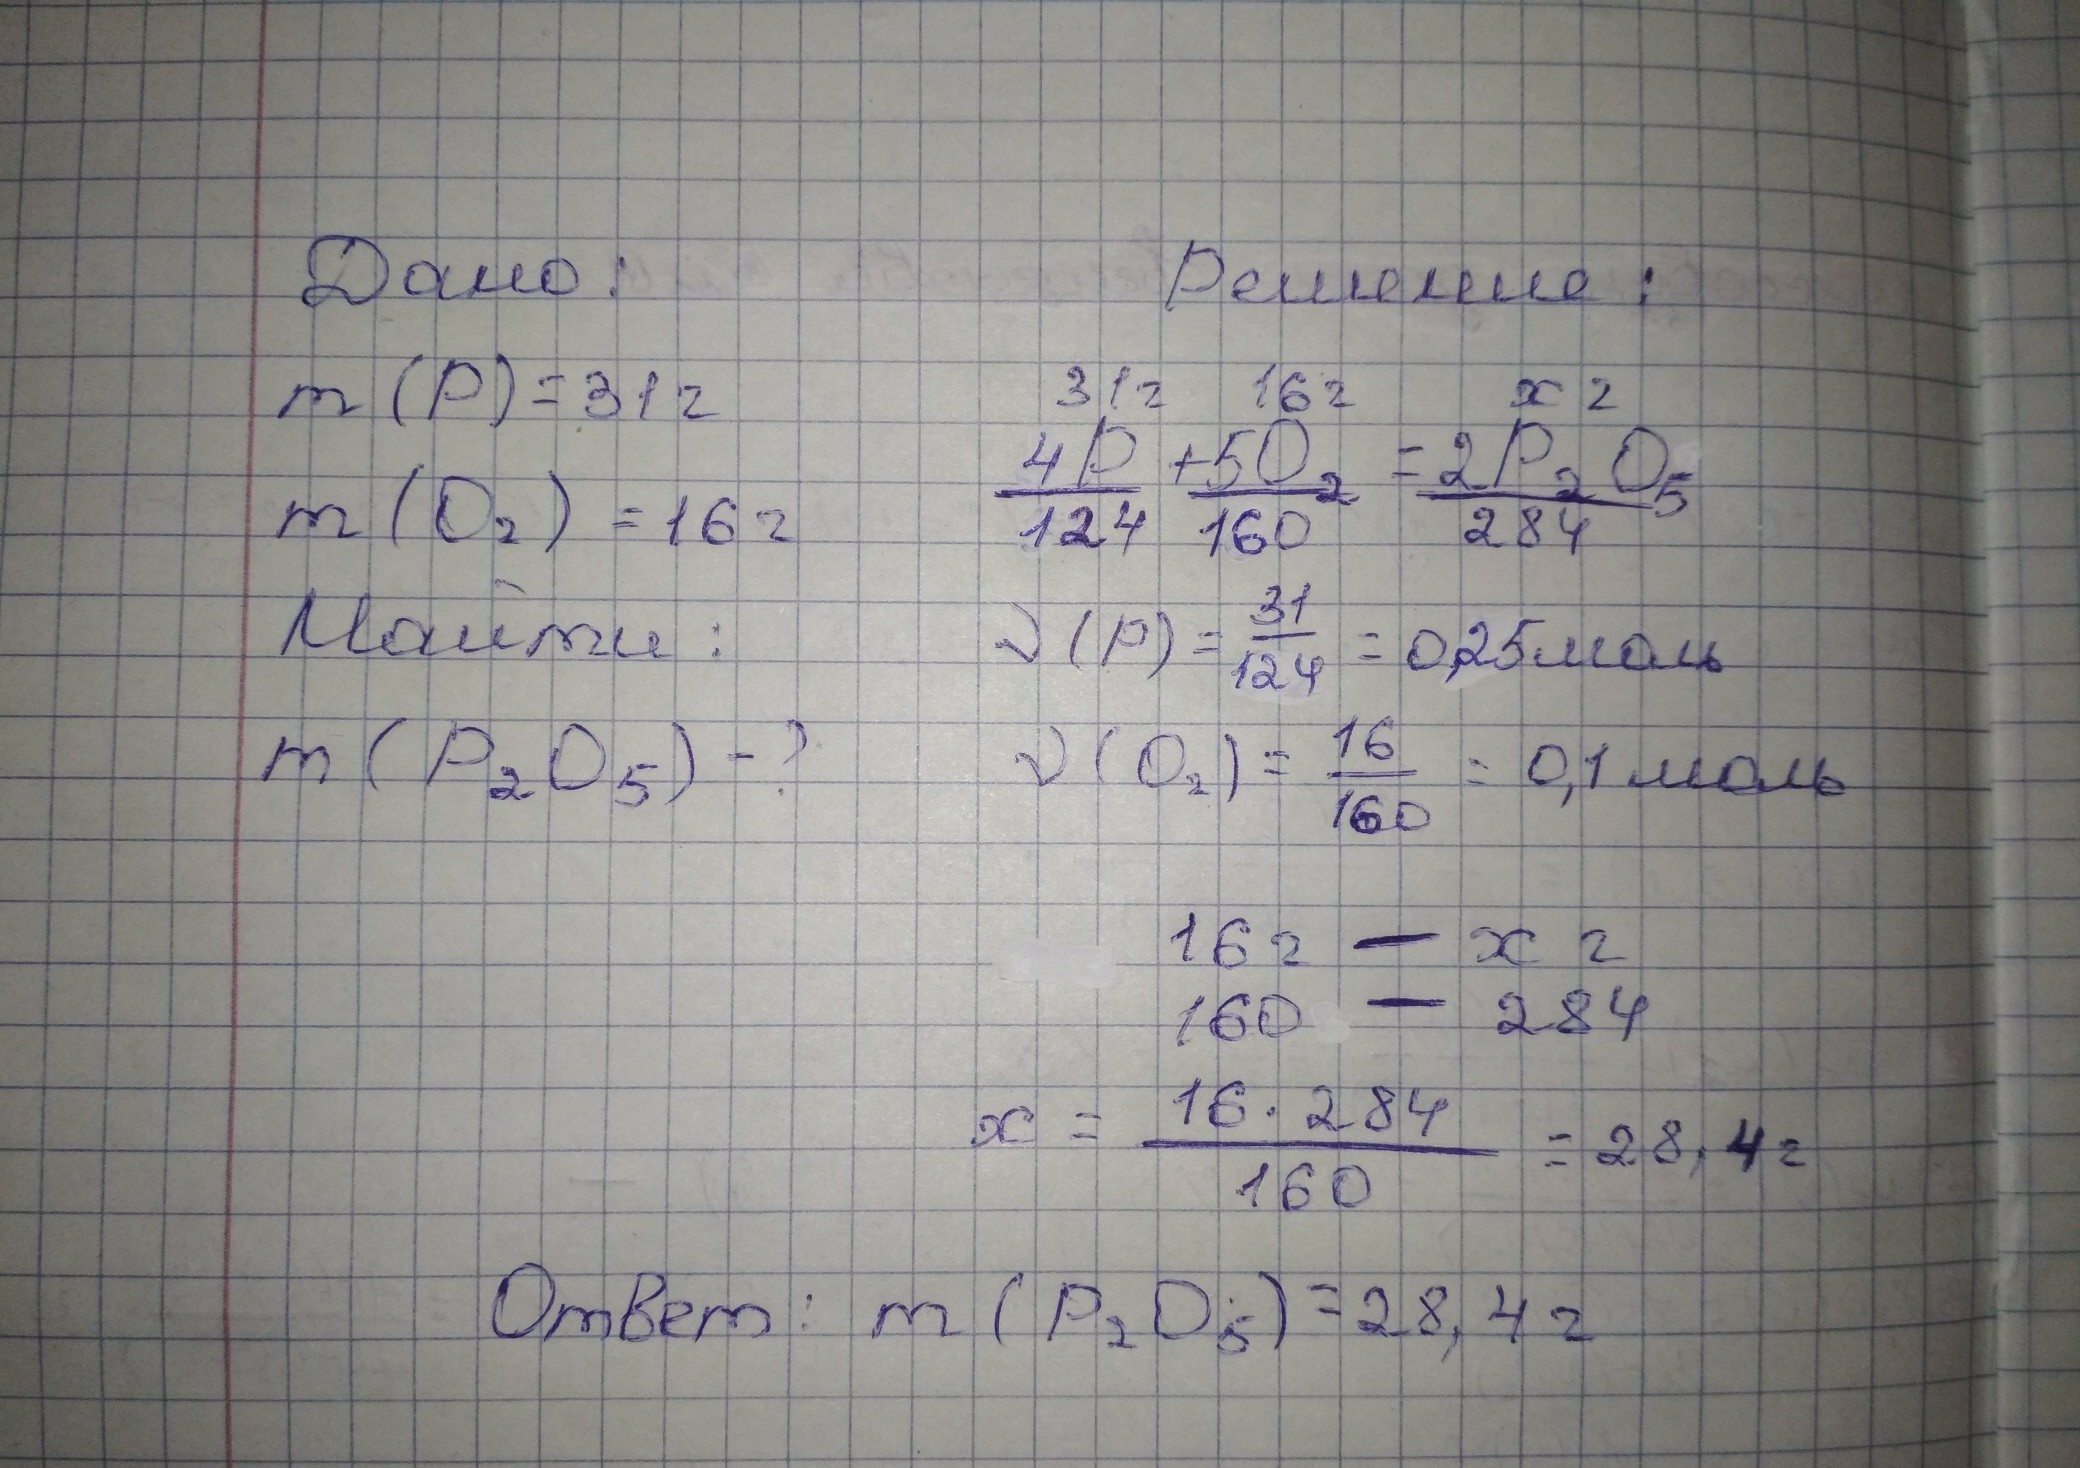 Дано:
m(P)=31г
m(O₂)=16г
Найти:
m(P₂O₅)-?
Решение:
31г 16г х г
4P+5O₂=2P₂O₅
124 160 284
ν(P)=31/124=0,25моль
ν(O₂)=16/160=0,1моль
16г — х г
160 — 284
х=16·284/160=28,4г
Ответ: m(P₂O₅)=28,4г